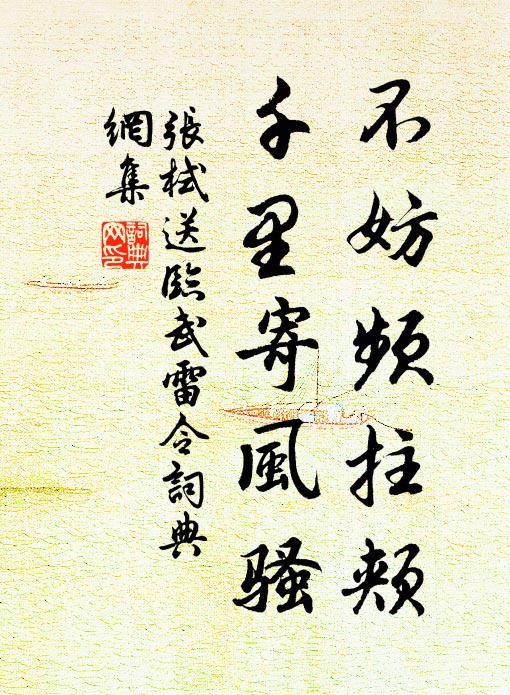 不妨頻拄頰
千里寄風騷
張栻送臨武雷令詞典
網集
詞典
网印